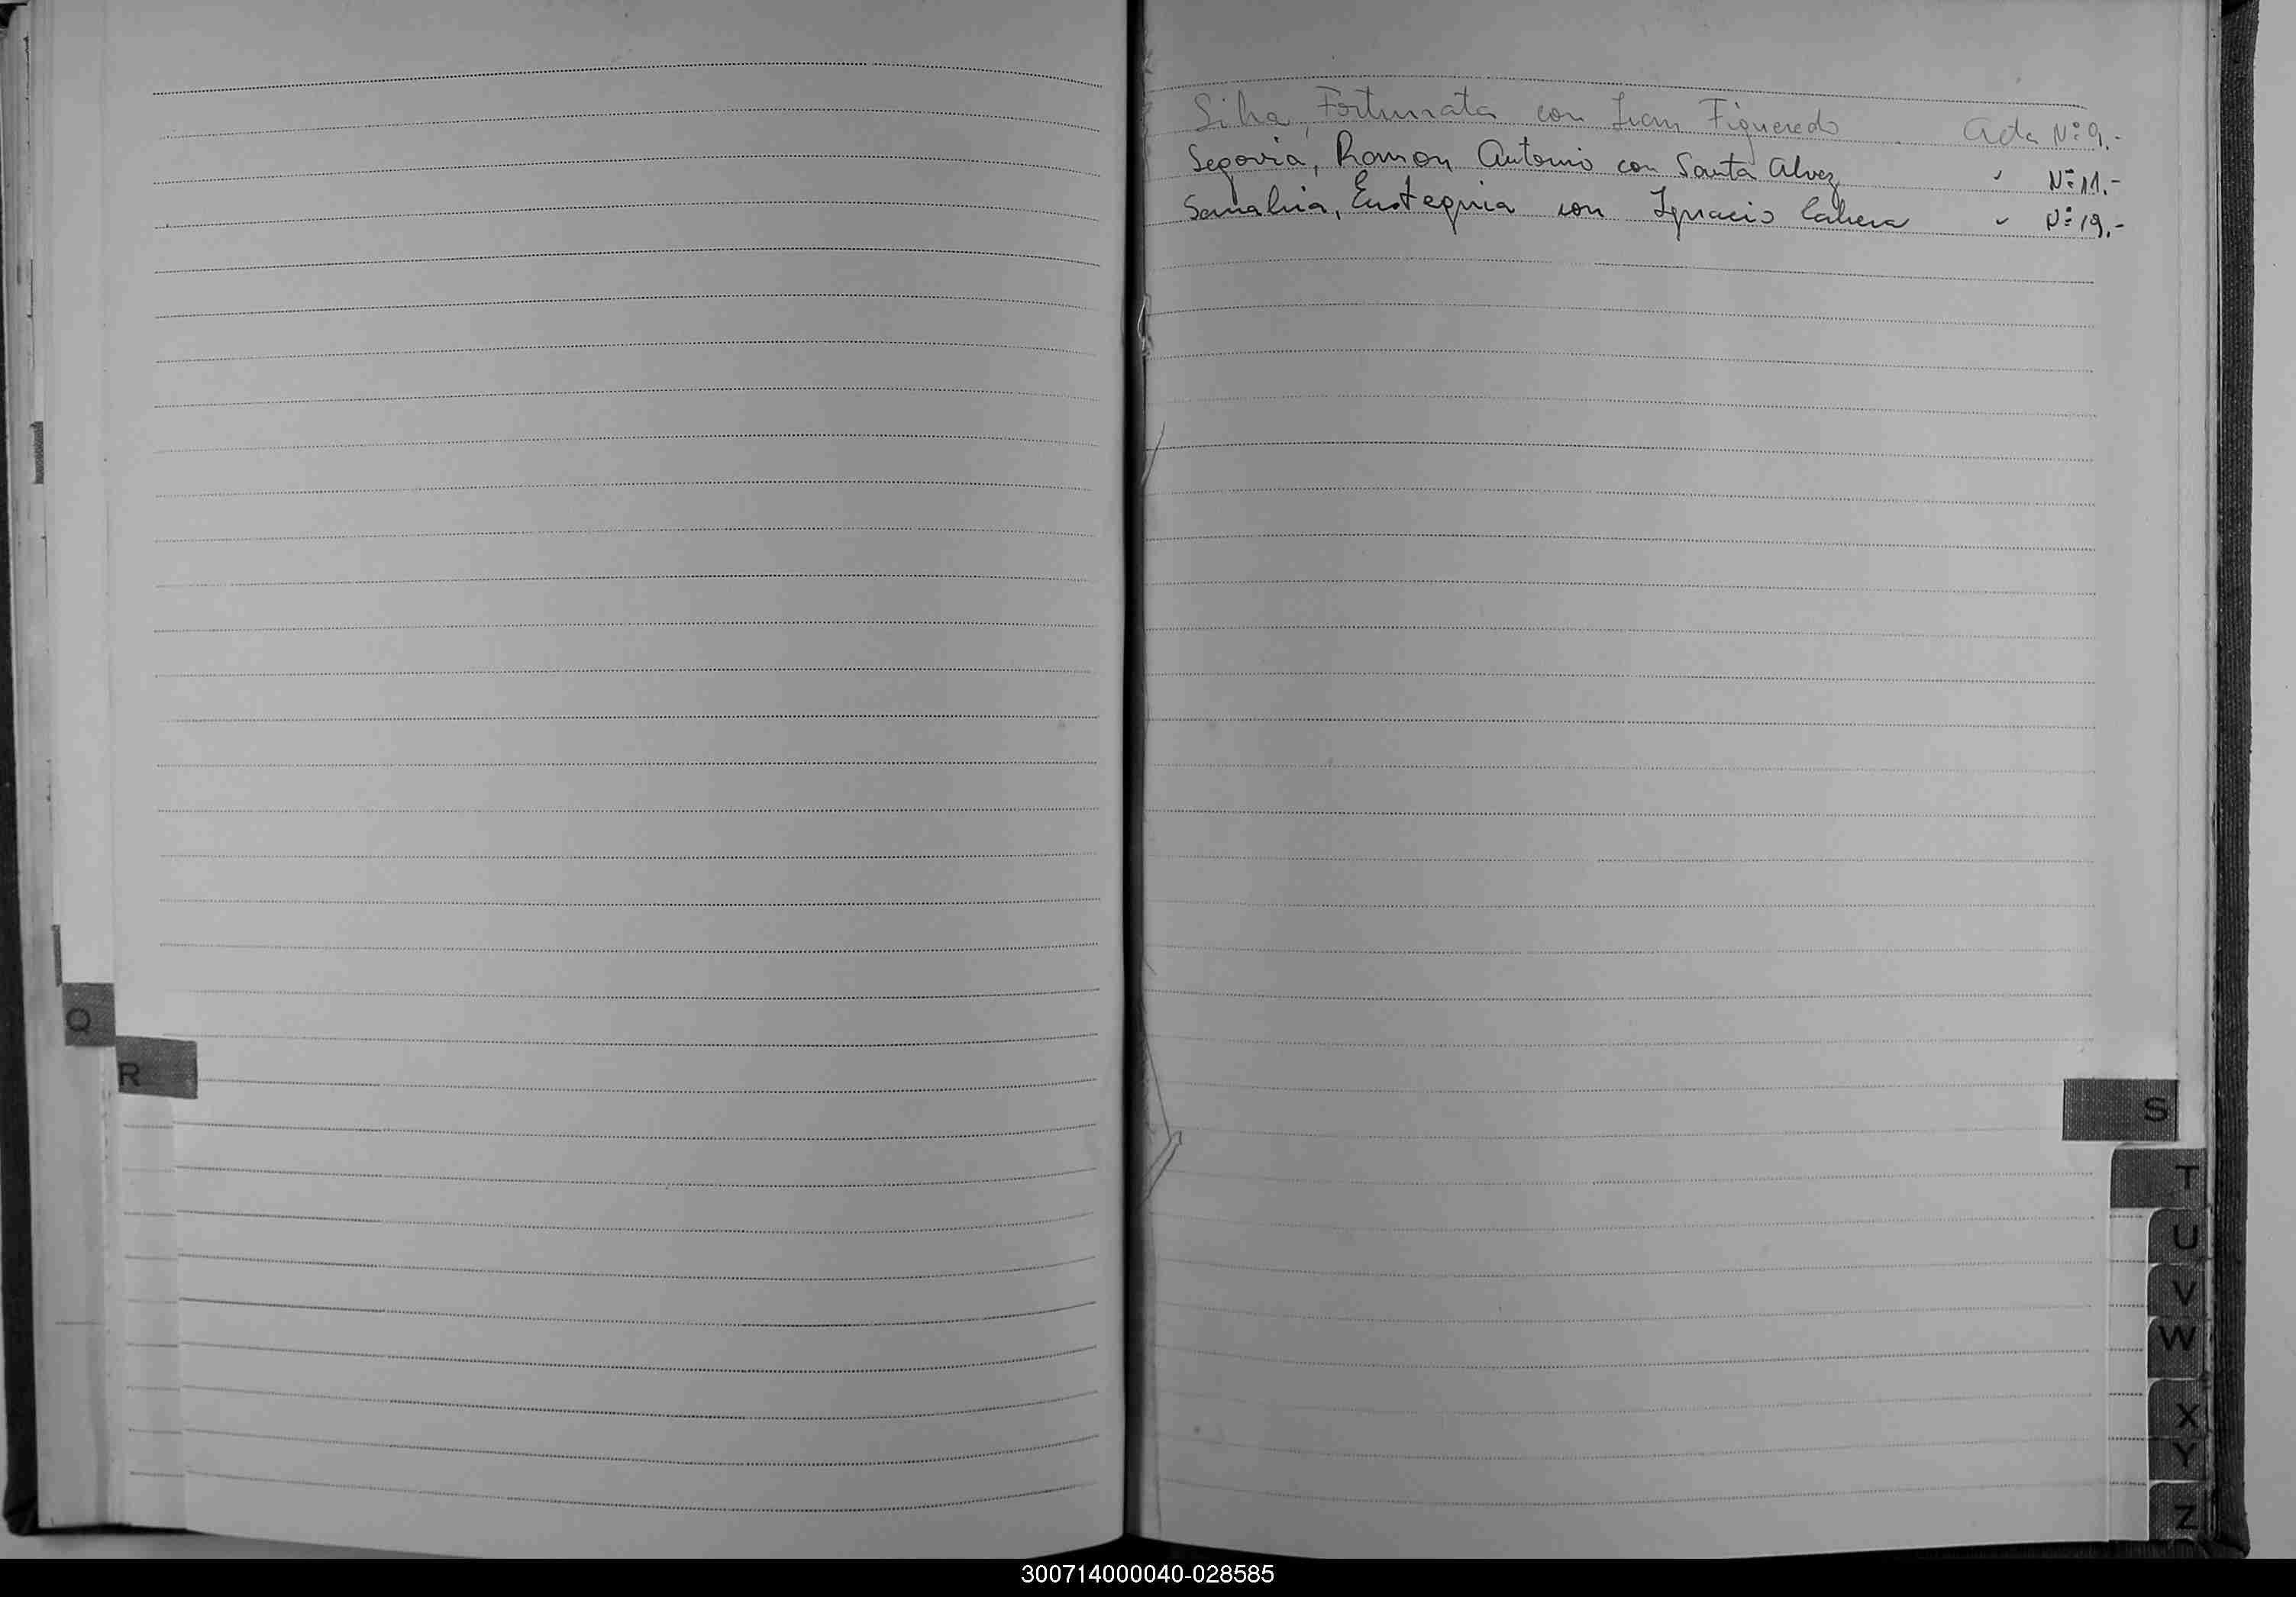 Silva, Fortunata con Juan Figueredo Acta Nº 9.-
Segovia, Ramon Antonio con Santa Alvez " Nº 11.-
Sanabria, Eustequia con Ignacio Cabrera " Nº 19.-
Q
R
S
T
U
V
W
X
Y
Z
300714000040-028585